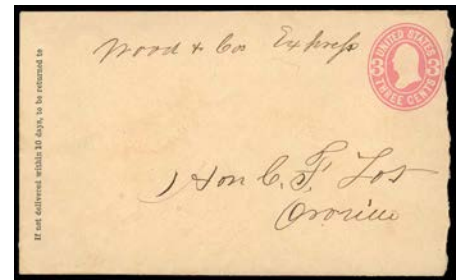 If not delivered within 10 days, to be returned to
Wood & Cos Express
UNITED STATES
THREE CENTS
3 3
Hon C. F. Lot
Oroville